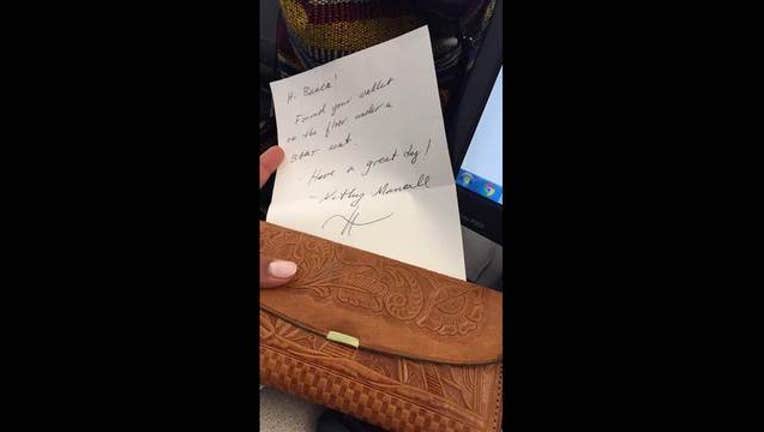 Hi Bianca!
Found your wallet
on the floor under a
seat.
- Have a great day!
- Kathy